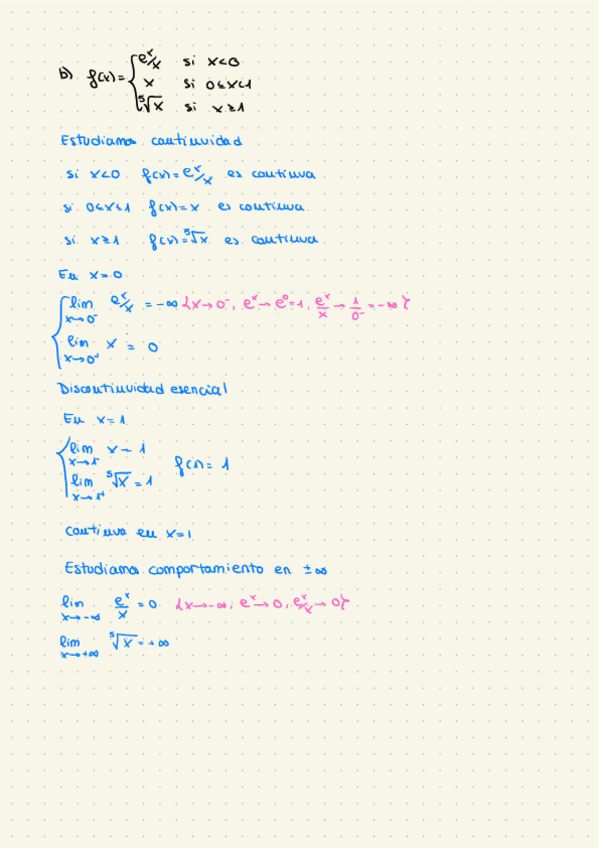 b) f(x) = { e^x/x si x<0
x si 0≤x<1
⁵√x si x≥1
Estudiamos continuidad
si x<0 f(x)= e^x/x es continua
si 0≤x<1 f(x)= x es continua
si x≥1 f(x)= ⁵√x es continua
En x=0
lim x→0⁻ e^x/x = -∞ {x→0⁻, e^x→e⁰=1, e^x/x → 1/0⁻ = -∞}
lim x→0⁺ x = 0
Discontinuidad esencial
En x=1
lim x→1⁻ x = 1
lim x→1⁺ ⁵√x = 1 f(1)= 1
continua en x=1
Estudiamos comportamiento en ±∞
lim x→-∞ e^x/x = 0 {x→-∞, e^x→0, e^x/x→0}
lim x→+∞ ⁵√x = +∞